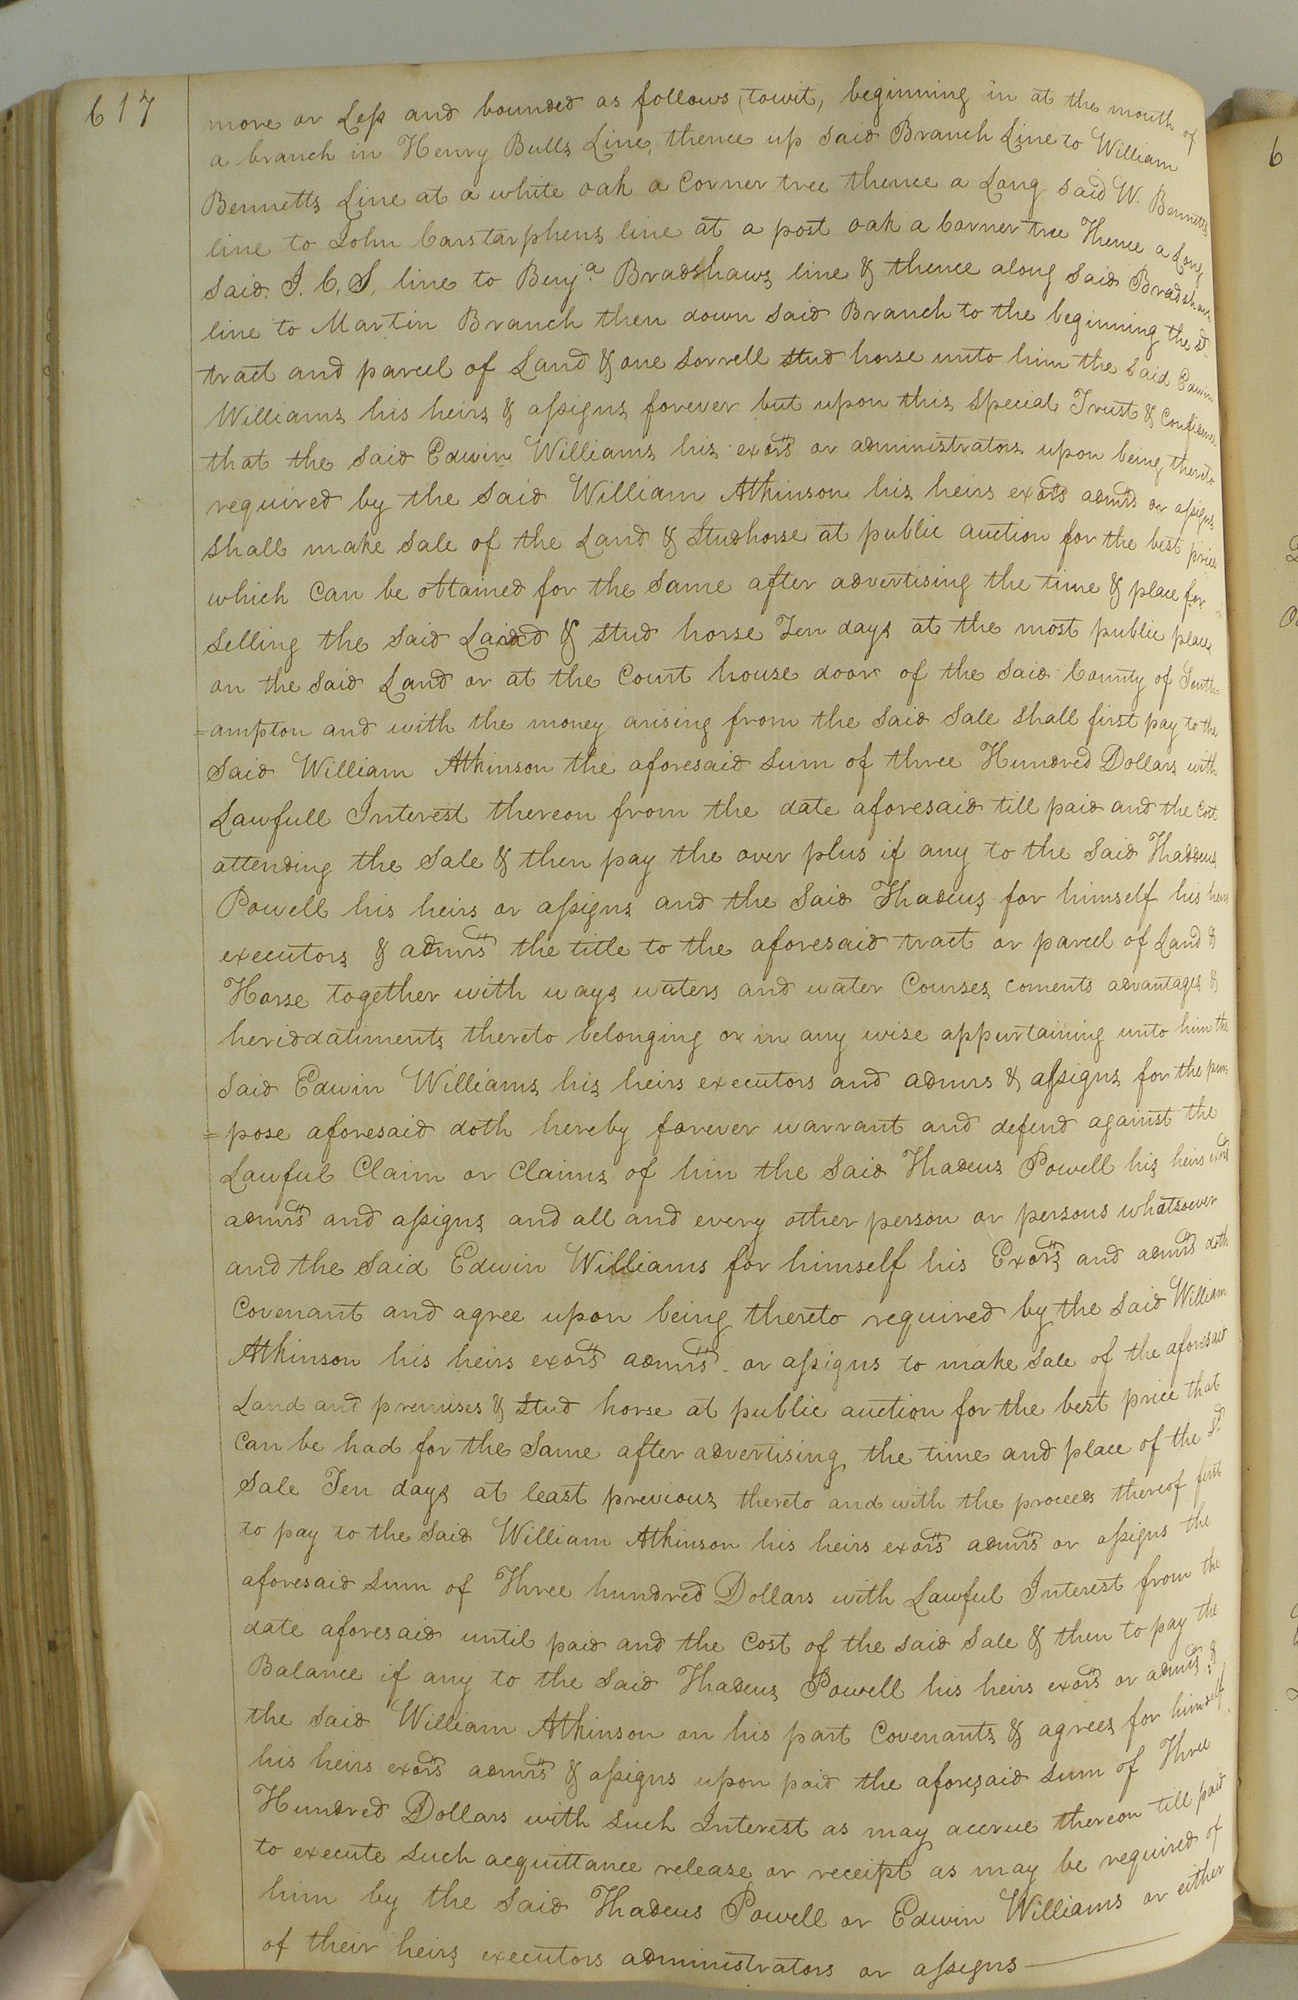 617
more or Less and bounded as follows, towit, beginning in at the mouth of
a branch in Henry Bulls Line, thence up said Branch Line to William
Bennetts Line at a white oak a Corner tree thence a Long said W. Bennetts
line to John Carstarphens line at a post oak a Corner tree Thence a Long
said. J. C. S. line to Benja Bradshaws line & thence along said Bradshaws
line to Martin Branch then down said Branch to the beginning the sd
tract and parcel of Land & one Sorrell stud horse unto him the said Edwin
Williams his heirs & assigns forever but upon this Special Trust & Confidence
that the said Edwin Williams his exors or administrators upon being thereto
required by the said William Atkinson his heirs exors admrs or assigns
shall make sale of the Land & Studhorse at public auction for the best price
which can be obtained for the same after advertising the time & place for
selling the said Land & stud horse Ten days at the most public place
on the said Land or at the Court house door of the said County of South-
=ampton and with the money arising from the said sale shall first pay to the
said William Atkinson the aforesaid sum of three Hundred Dollars with
Lawfull Interest thereon from the date aforesaid till paid and the Cost
attending the sale & then pay the over plus if any to the said Thaddeus
Powell his heirs or assigns and the said Thadeus for himself his heirs
executors & admrs the title to the aforesaid tract or parcel of Land &
Horse together with ways waters and water Courses coments advantages &
heriddatiments thereto belonging or in any wise appurtaining unto him the
said Edwin Williams his heirs executors and admrs & assigns for the pur-
=pose aforesaid doth hereby forever warrant and defend against the
Lawful Claim or Claims of him the said Thadeus Powell his heirs exors
admrs and assigns and all and every other person or persons whatsoever
and the said Edwin Williams for himself his Exors and admrs doth
Covenant and agree upon being thereto required by the said William
Atkinson his heirs exors admrs - or assigns to make sale of the aforesaid
Land and premises & stud horse at public auction for the best price that
Can be had for the same after advertising the time and place of the sd
sale Ten days at least previous thereto and with the proceeds thereof first
to pay to the said William Atkinson his heirs exors admrs or assigns the
aforesaid sum of Three hundred Dollars with Lawful Interest from the
date aforesaid until paid and the Cost of the said sale & then to pay the
Balance if any to the said Thadeus Powell his heirs exors or admrs &
the said William Atkinson on his part Covenants & agrees for himself
his heirs exors admrs & assigns upon paid the aforesaid sum of Three
Hundred Dollars with such Interest as may accrue thereon till paid
to execute such acquittance release or receipt as may be required of
him by the said Thadeus Powell or Edwin Williams or either
of their heirs executors administrators or assigns
6